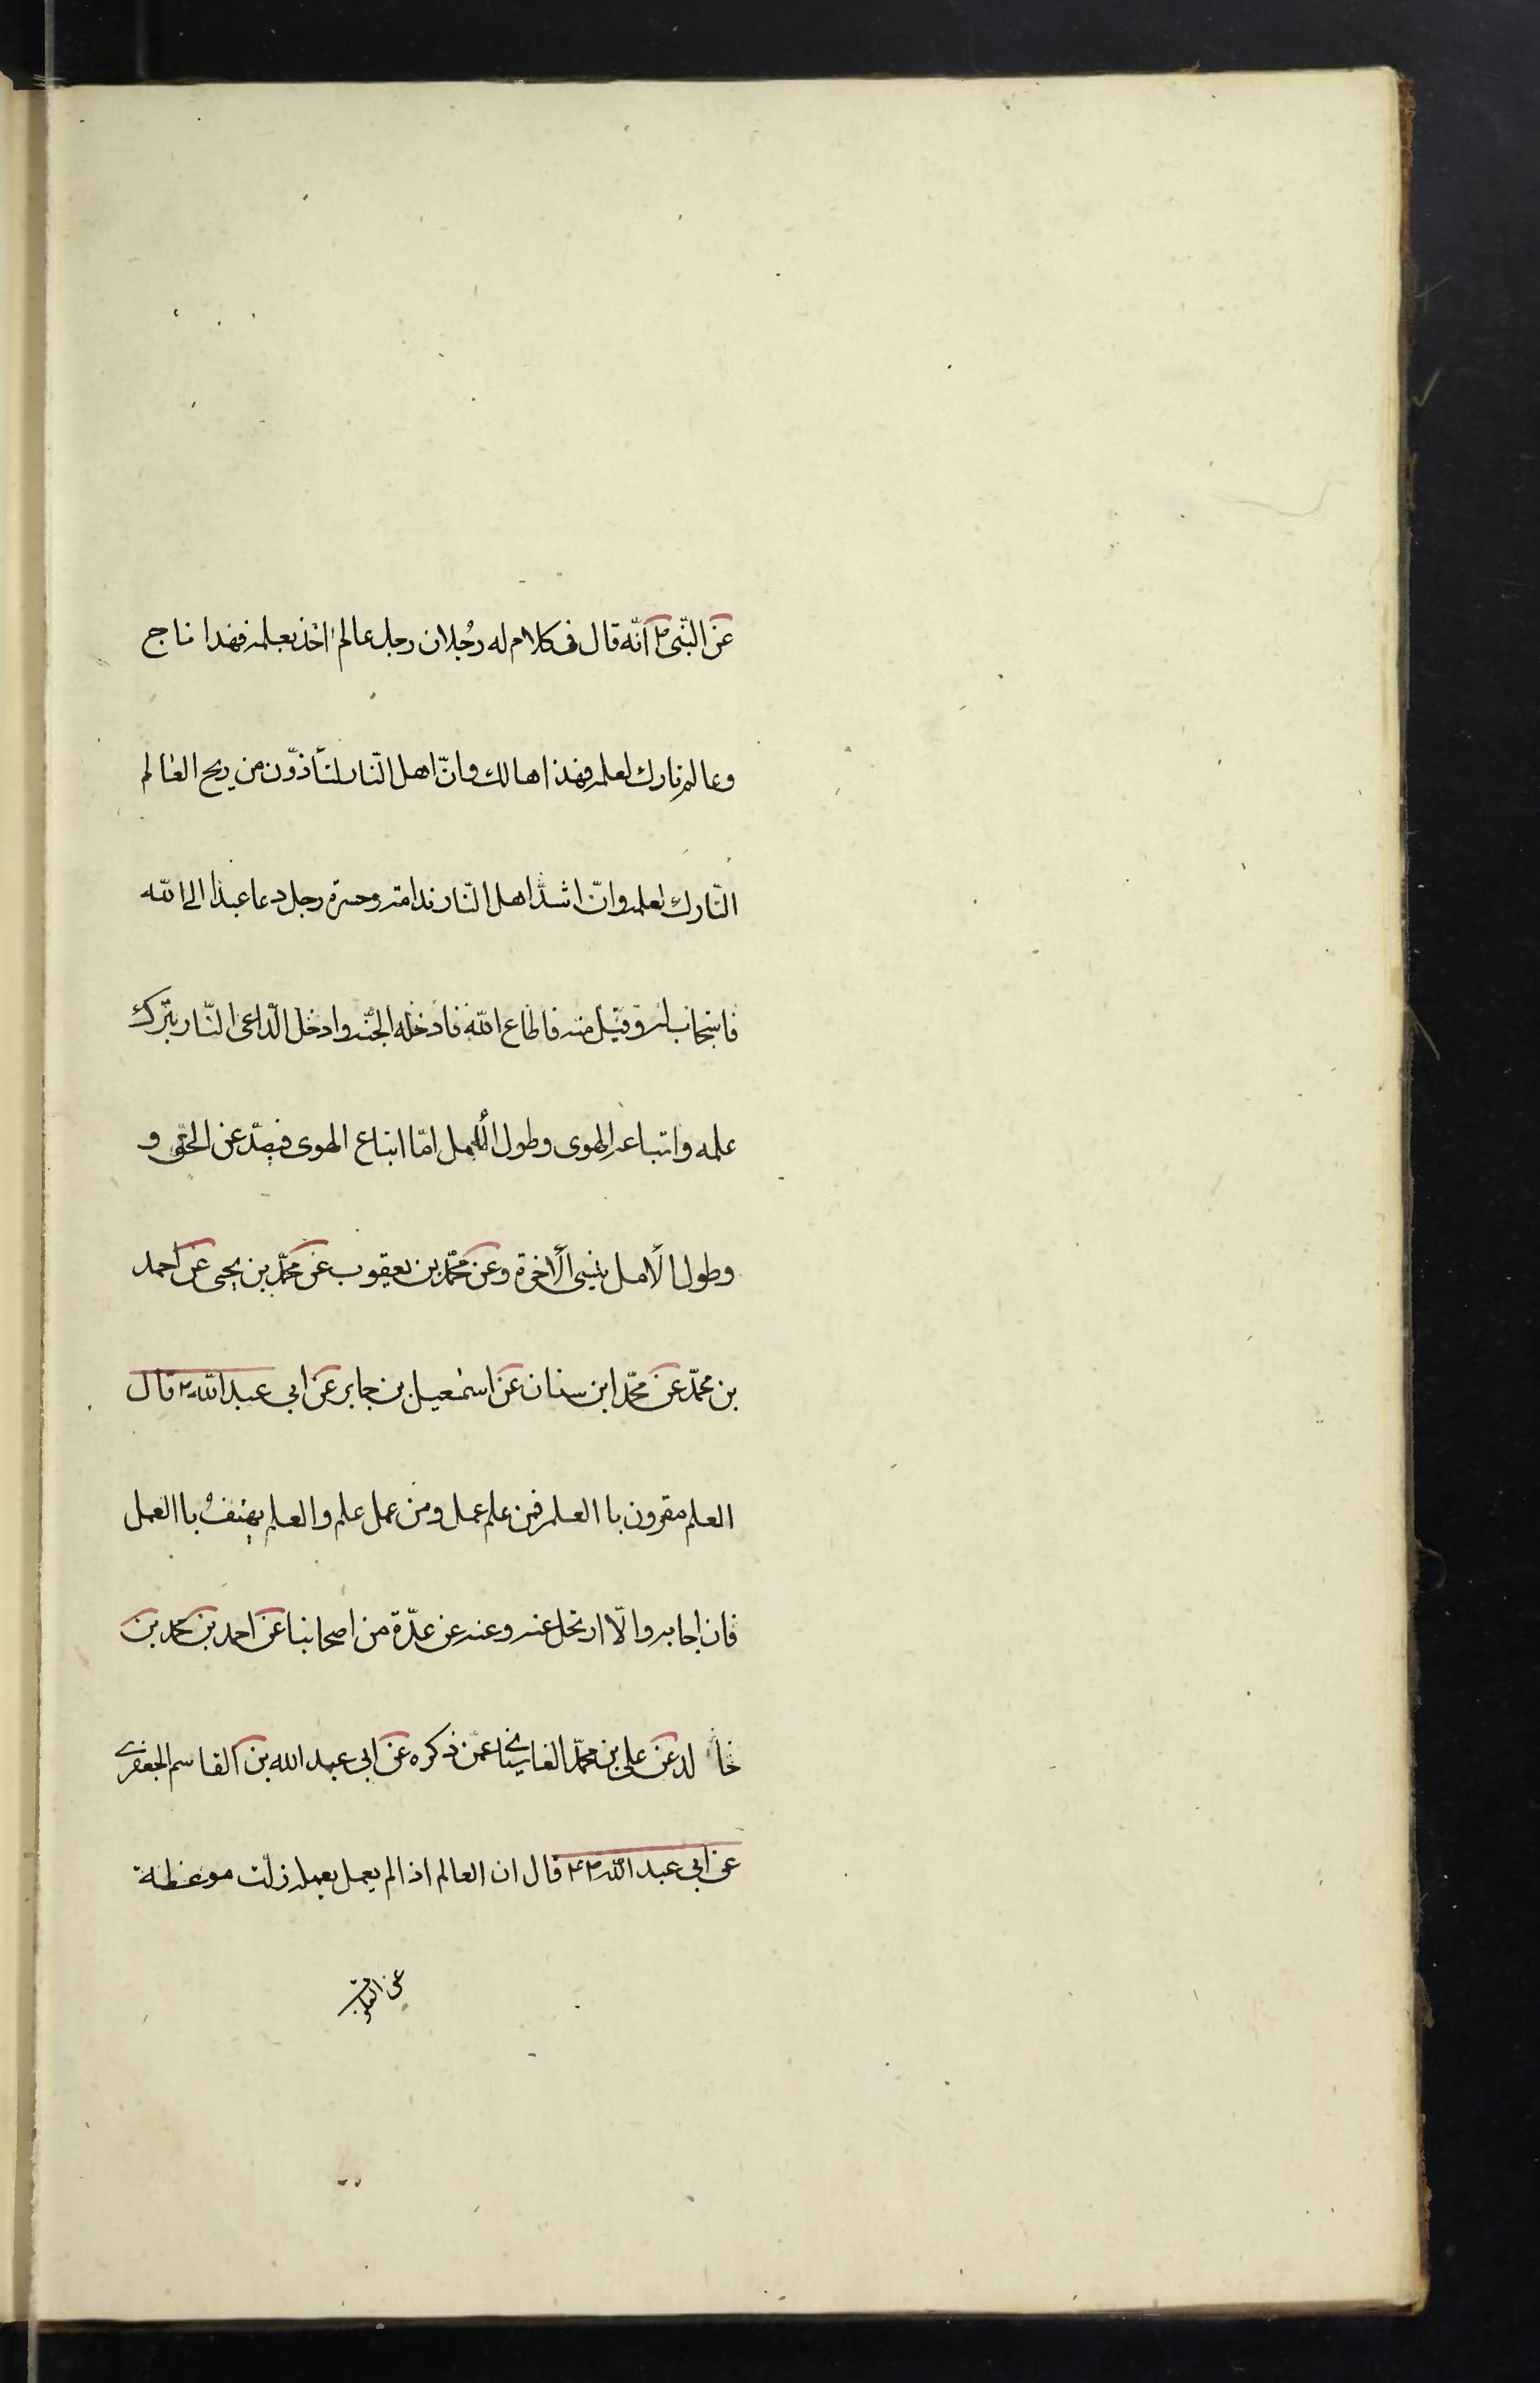 عن النّبى ص انّه قال فى كلام له رجُلان رجل عالم اخذ بعلمه فهذا ناج
وعالم تارك لعلمه فهذا هالك وانّ اهل النّار لتأذّون من ريح العالم
التّارك لعلمه وانّ اشدّ اهل النّار ندامته وحسرة رجل دعا عبدا الى الله
فاستجاب له وقبل منه فاطاع الله فادخله الجنّة وادخل الدّاعى النّار بتركه
علمه واتباعه الهوى وطول الأمل امّا اتباع الهوى فيصدّ عن الحقّ و
وطول الأمل ينسى الأخرة وعن محمّد بن يعقوب عن محمّد بن يحيى عن احمد
بن محمّد عن محمّد ابن سنان عن اسمعيل بن جابر عن ابى عبد الله ع قال
العلم مقرون با العلم فمن علم عمل ومن عمل علم والعلم يهتف با العمل
فان اجابه والّا ارتحل عنه وعنه عن عدّة من اصحابنا عن احمد بن محمد بن
خالد عن على بن محمّد القاسانى عمّن ذكره عن ابى عبد الله بن القاسم الجعفرى
عن ابى عبد الله ع قال ان العالم اذا لم يعمل بعلمه زلّت موعظة
عن القلوب